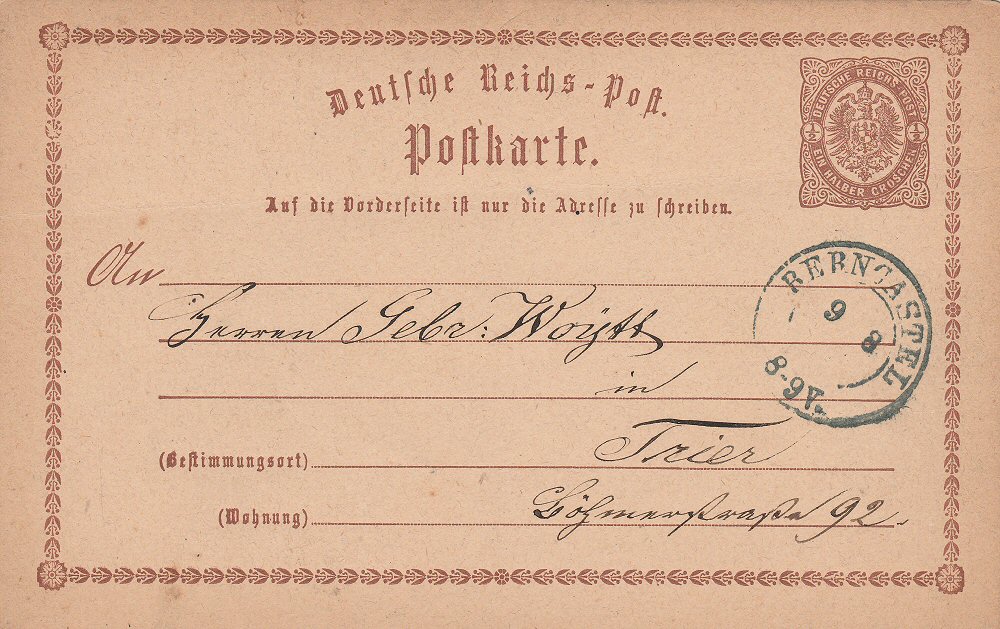 Deutsche Reichs-Post.
Postkarte.
Auf die Vorderseite ist nur die Adresse zu schreiben.
DEUTSCHE REICHS-POST
½ ½
EIN HALBER GROSCHEN
An
Herren Gebr: Woytt
in
(Bestimmungsort) Trier
(Wohnung) Böhmerstraße 92.
BERNCASTEL
9 8
8-9V.